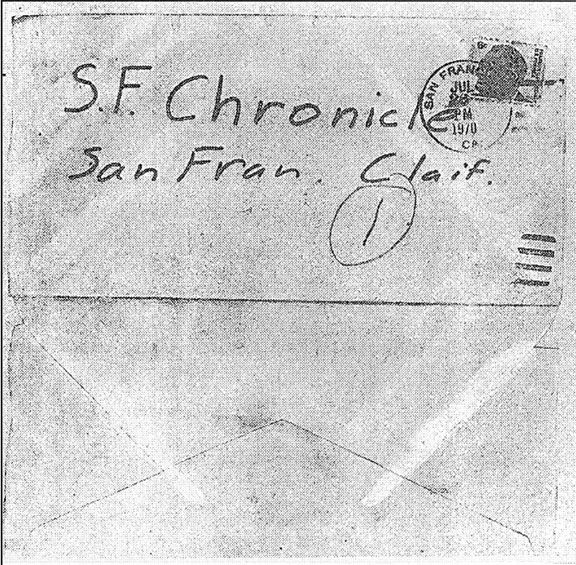 S.F. Chronicle
San Fran. Claif.
1
SAN FRAN
JUL
PM
1970
CA
6c